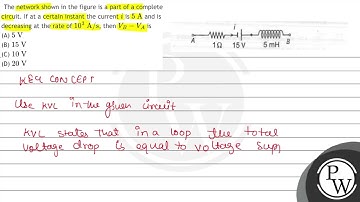 The network shown in the figure is a part of a complete
circuit. If at a certain instant the current i is 5 A and is
decreasing at the rate of 10³ A/s, then V_B − V_A is
(A) 5 V
(B) 15 V
(C) 10 V
(D) 20 V
A
1Ω
i
15 V
5 mH
B
KEY CONCEPT
Use KVL in the given circuit
KVL states that in a loop the total
voltage drop is equal to voltage sup
PW